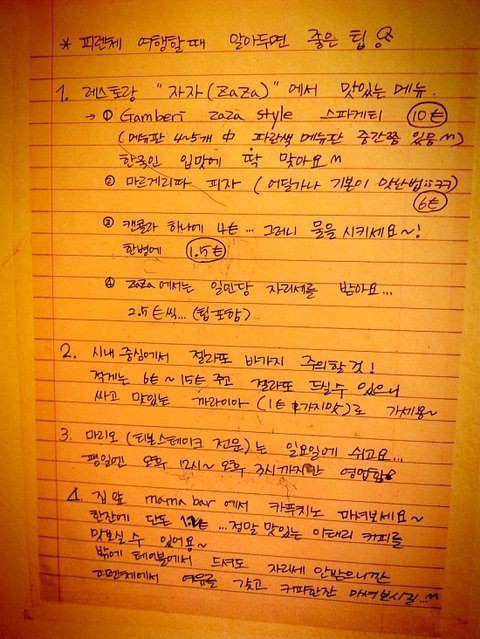 * 피렌체 여행할때 알아두면 좋은 팁
1. 레스토랑 "자자(zaza)"에서 맛있는 메뉴.
→ ① Gamberi zaza style 스파게티 10€
(메뉴판 4~5개 中 파란색 메뉴판 중간쯤 있음 ^^)
한국인 입맛에 딱 맞아요 ^^
② 마르게리따 피자 (어딜가나 기본이 맛난법!! ㅋㅋ)
6€
③ 캔콜라 하나에 4€... 그러니 물을 시키세요~!
한병에 1.5€
④ zaza에서는 일인당 자리세를 받아요...
2.5€씩... (팁포함)
2. 시내 중심에서 젤라또 바가지 주의할 것!
적게는 6€~15€ 주고 젤라또 드실수 있으니
싸고 맛있는 까라이아 (1€ 가지맛)로 가세용~
3. 마리오 (티본스테이크 전문)는 일요일에 쉬고요...
평일엔 오후 12시~ 오후 3시까지만 영업함
4. 집 앞 mama bar 에서 카푸치노 마셔보세요~
한잔에 단돈 ...정말 맛있는 이태리 커피를
맛보실 수 있어용~
밖에 테이블에서 드셔도 자리세 안받으니깐
피렌체에서 여유를 갖고 커피한잔 마셔보시길...^^